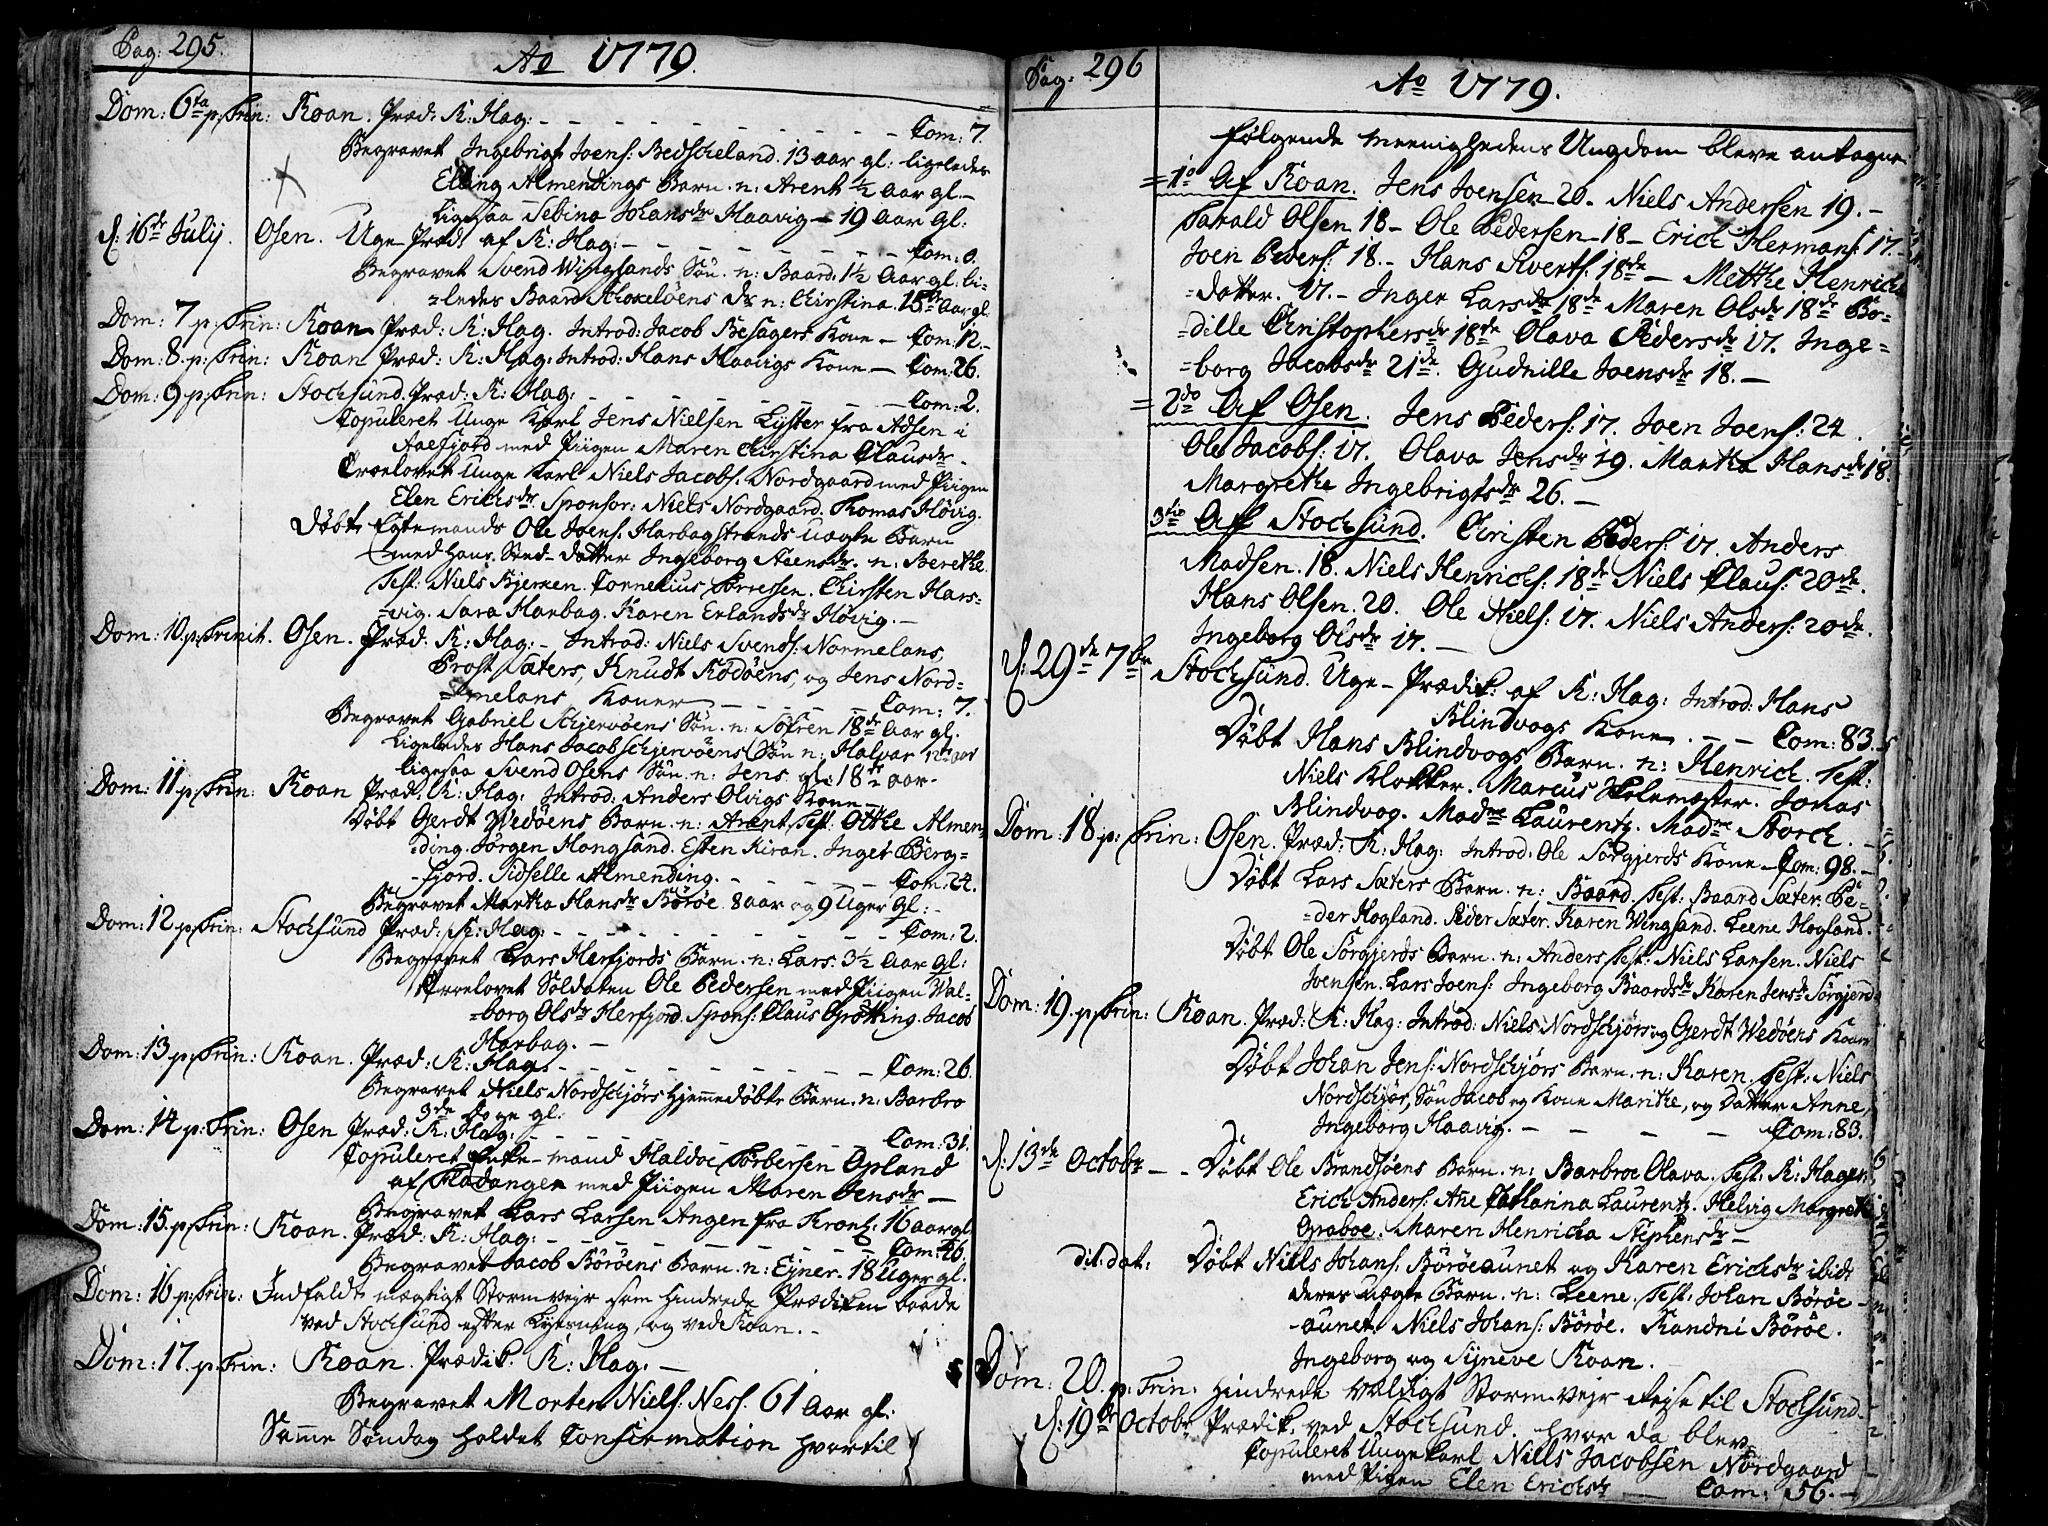 Pag: 295.
Ao 1779.
Dom: 6ta p: Trin: Roan. Præd: K: Hag: - - - - - - - - - - Com: 7.
Begravet Ingebrigt Joens: Bedscheland. 13 aar gl: ligeledes
Elling Almendings Barn. n: Arent ½ Aar gl.-
Ligesaa Sebina Johansdr Haavig - 19 Aar gl:
d: 16de Julij. Osen. Uge-Præd: af K: Hag: - - - - - - - Com: 0.
Begravet Svend Winglands Søn. n: Baard. 1½ Aar gl: li-
=ledes Baard dr n: Chirstina. 15 Aar gl.
Dom: 7 p: Trin: Roan Præd: K: Hag. Introd: Jacob Besagers Kone - Com: 12.-
Dom: 8. p: Trin: Roan Præd: K: Hag: Introd: Hans Haavigs Kone - Com: 26.
Dom: 9 p: Trin: Stochsund. Præd: K: Hag: - - - - - - - - Com: 2.
Copuleret Unge Karl Jens Nielsen Lyster fra Adsen i
Aaefjord med Piigen Maren Chirstina Clausdr -
Troelovet Unge Karl Niels Jacobs: Nordgaard med Piigen
Elen Erichsdr Sponsor: Niels Nordgaard. Thomas Høvig.
Døbt Egtemands Ole Joens: Harbagstrands uægte Barn
med hans Sted-datter Ingeborg n: Berethe.
Test: Niels Bjerken. Cornelius Torressen. Chirsten Hars-
=vig. Sara Harbag. Karen Erlandsdr Høvig.-
Dom: 10. p: Trinit. Osen. Præd: K: Hag: - Introd: Niels Svends: Normelans,
Brost Sæters, Knudt Rødøens, og Jens Nord-
=melans Koner - - - - - Com: 7.
Begravet Gabriel Schjervøens Søn. n: Søfren 18de Aar gl.
Ligeledes Hans Jacob Schjervøens Søn n: Halvar 12te aar
Ligesaa Svend Osens Søn. n: Jens gl: 18de aar.
Dom: 11 p: Trin: Roan Præd: K: Hag: Introd: Anders Olvigs Kone -
Døbt Gerdt Wedøens Barn. n: Arent. Test: Otthe Almen-
ding. Jørgen Hongsand. Esten Kiran. Inger Berg-
-fjord. Sidselle Almending. - - - - - Com: 24.
Begravet Martha Hansdr Børøe 8 aar og 9 Uger gl: -
Dom: 12 p: Trin: Stochsund Præd: K: Hag: - - - - - - - - Com: 2.
Begravet Lars Herfjords Barn. n: Lars. 3½ Aar gl:
Troelovet Soldaten Ole Pedersen med Piigen Wal-
=borg Olsdr Herfjord. Spons: Claus Grøtting. Jacob
Harbag. -
Dom: 13 p: Trin: Roan. Præd: K: Hag: - - - - - - - - Com: 26.
Begravet Niels Nordschjørs hjemmedøbte Barn. n: Barbro
3de Dage gl:
Dom: 14 p: Trin: Osen Præd: K: Hag: - - - - - - - - Com: 31.
Copuleret Enke-mand Haldoe Torbersen Opland
af Fladangen med Piigen Maren Jensdr -
Begravet Lars Larsen Angen fra Kronk: 16 aar gl:
Dom: 15. p: Trin: Roan. Præd: K: Hag: - - - - - - - Com: 46.
Begravet Jacob Børøens Barn. n: Ejner. 18 Uger gl.
Dom: 16 p: Trin: Indfaldt mægtigt Stormvejr som hindrede Prædiken baade
ved Stochsund efter Lysning, og ved Roan. -
Dom: 17. p: Trin: Roan. Prædik. K: Hag: -
Begravet Morten Niels: Ness. 61 Aar gl:
Samme Søndag holdet Confirmation hvortil
Pag: 296
Ao 1779.
følgende Meenighedens Ungdom bleve antagne
= 1o Af Roan. Jens Joensen 20. Niels Andersen 19. -
Tarald Olsen 18 - Ole Pedersen - 18 - Erich Hermans: 17. -
Joen Peders: 18. - Hans Siverts: 18de - Metthe Henrichs
=datter. 17. - Inger Larsdr 18de Maren Olsdr 18de Bo-
=dille Christophersdr 18de Olava Pedersdr 17. Inge-
=borg Jacobsdr 21de. Gudnille Joensdr 18. -
= 2do Af Osen. Jens Peders: 17. Joen Joens: 24.
Ole Jacobs: 17. Olava Jensdr 19. Martha Hansdr 18.
Margrethe Ingebrigtsdr 26. -
3tio Aff Stochsund. Christen Peders: 17. Anders
Madsen. 18. Niels Henrichs: 18de Niels Claus: 20de.
Hans Olsen. 20. Ole Niels: 17. Niels Anders: 20de.
Ingeborg Olsdr 17. -
d: 29de 7br Stochsund. Uge-Prædik: af K: Hag: Introd: Hans
Blindvogs Kone. - - Com: 83.
Døbt Hans Blindvogs Barn. n: Henrich. Test:
Niels Klokker. Marcus Skolemæster. Jonas
Blindvog. Madme Laurentz. Madme Storch. -
Dom: 18. p: Trin: Osen. Præd: K: Hag: Introd: Ole Sørgjerds Kone - Com: 98. -
Døbt Lars Sæters Barn. n: Baard. Test: Baard Sæter. Pe-
=der Hogland. Peder Sæter. Karen Wengsand. Leene Hogland.
Døbt Ole Sørgjerds Barn. n: Anders. Test: Niels Larsen. Niels
Joensen. Lars Joens: Ingeborg Baardsdr Karen Jensdr Sørgjerd
Dom: 19. p: Trin: Roan. Præd: K: Hag: Introd: Niels Nordschjørs og Gerdt Wedøens Koner
Døbt Johan Jens: Nordschjørs Barn. n: Karen. Test: Niels
Nordschjør, Søn Jacob og Kone Marithe, og Datter Anne,
Ingeborg Haavig. - - - - - Com: 83.
d: 13de Octobr - - Døbt Ole Brandsøens Barn. n: Barbroe Olava. Test: K: Hagen
Erich Anders: Ane Catharina Laurentz. Helvig Margrethe
Graboe. Maren Henricha Stephensdr -
dit: dat: Døbt Niels Johans: Børøeaunet og Karen Erichsdr ibid:
deres uægte Barn. n: Leene. Test: Johan Børøe-
-aunet. Niels Johans: Børøe. Randni Børøe.
Ingeborg og Syneve Roan. -
Dom: 20. p: Trin: hindrede vældigt Stormvejr Rejse til Stochsund.
d: 19de Octobr Prædik. ved Stochsund. hvor da blev
Copuleret Ungekarl Niels Jacobsen Nordgaard
med Pigen Elen Erichsdr - Com: 56. -